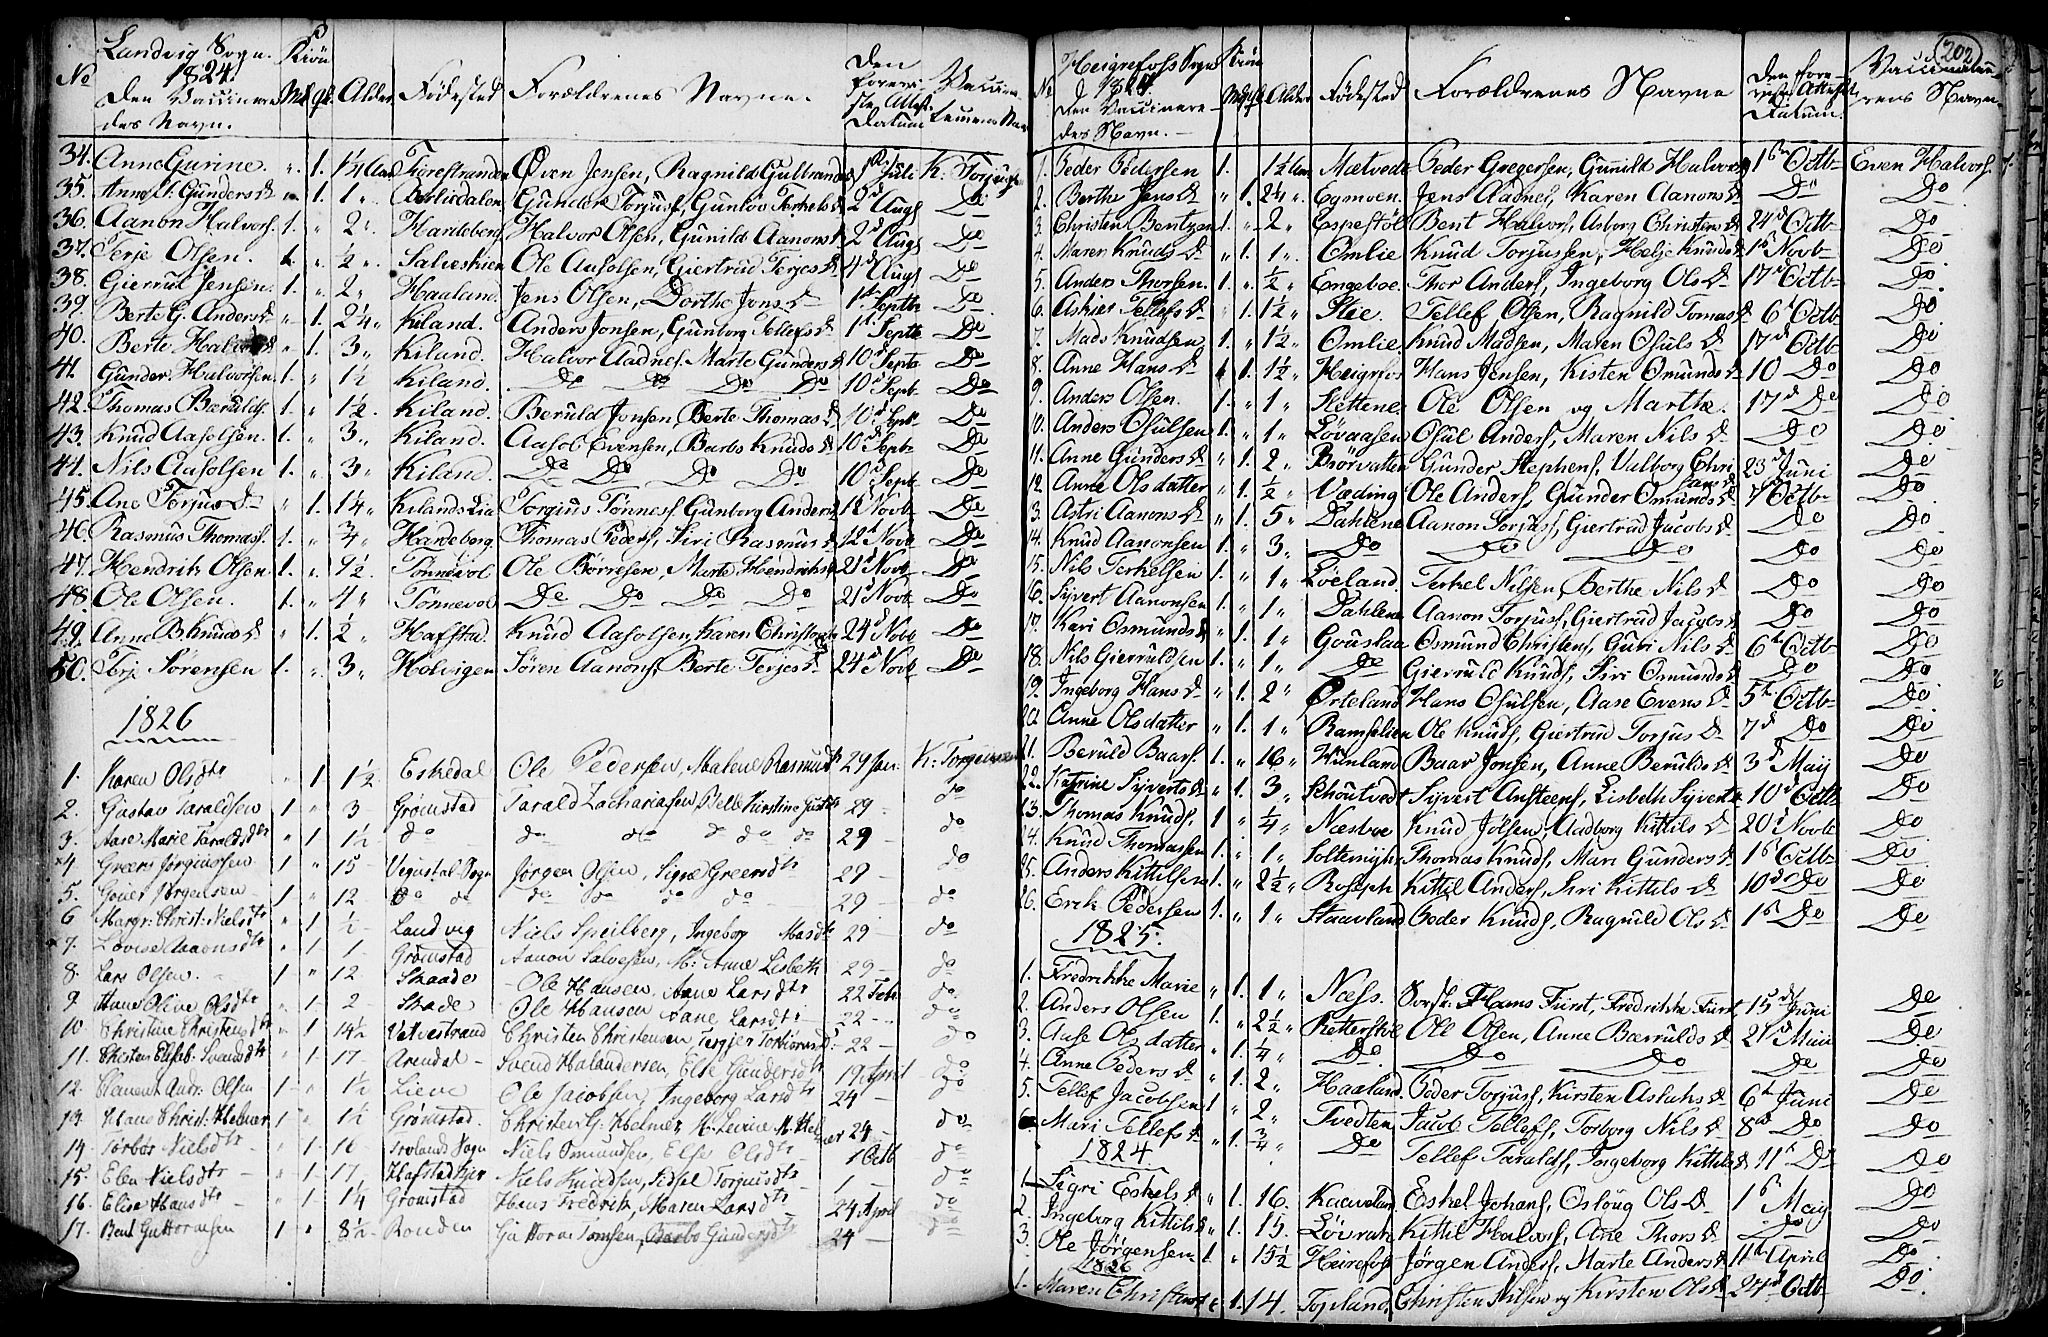 Landvig Sogn.
1824.
No
Den Vaccinere
des Navn.
Kiön
Mk. Qk. Alder Födested Forældrenes Navne.
Den
forevi
ste Attest.
Datum
34. Anne Gurine. " 1. 1¼ Aar Fiærestranden Öven Jensen, Ragnild Gulbrands 1st Juli K: Torjus
35. Anne M. Gunders D " 1. 1 " Gunder Torjuss, Gunlov Terkels D 2d Augs Do
36. Aanon Halvors. 1. " 2 " Hardeberg Halvor Olsen, Gunild Aanons D 2d Augs Do
37. Terje Olsen. 1. " ½ " Salveskien Ole Aasolsen, Giertrud Terjes D 4d Augs Do
38. Gierrul Jensen. 1. " 2 " Haaland. Jens Olsen, Dorthe Jons D 1st Septb Do
39. Berte G. Anders D " 1. 2¼ " Kiland. Anders Jonsen, Gunborg Tellefs D 1st Septb Do
40. Berte Halvors D " 1. 3 " Kiland. Halvor Aadnes. Marte Gunders D 10d Septb Do
41. Gunder Halvorsen 1. " 1½ Kiland. Do Do Do Do 10d Septb Do
42. Thomas Beruldss. 1. " 1½ Kiland. Beruld Jonsen, Berte Thomas D 10d Septb Do
43. Knud Aasolsen. 1. " 3 " Kiland. Aasol Evensen, Barbo Knuds D 10d Septb Do
44. Nils Aasolsen 1. " 3 " Kiland. Do Do Do Do 10d Septb Do
45. Ane Torjus D " 1. 1¼ " Kilands Lia Torgius Tönness, Gunborg Anders 12 Novb Do
46. Rasmus Thomass. 1. " ¾ " Hardeberg. Thomas Peders, Siri Rasmus D 12d Novb Do
47. Hendrik Olsen. 1. " 9½ Tönnevol Ole Börresen, Marte Hendriks 21d Novb Do
48. Ole Olsen. 1. " 4 " Tönnevol Do Do Do Do 21d Novb Do
49. Anne B. Knuds D " 1. ½ " Hafstad. Knud Aasolsen, Karen Christens 24d Novb Do
50. Terje Sörensen 1. " 3 " Holvigen Sören Aanons, Berte Terjes D 24d Novb Do
1826
1. Karen Olsdtr " 1 1½ Eskedal Ole Pedersen, Malene Rasmusdtr 29 Jan. K: Torgiusen
2. Gustav Taraldsen 1 " 3 Grømstad Tarald Zachariasen, Belle Kirstine 29 - do
3. Aase Marie Taraldsdtr " 1 1½ do do do do do 29 - do
4 Greers Jørginssen 1 " 15 Jørgen Olsen, Signe Greersdtr 29 - do
5. Gouer Jørgensen 1 " 12 do do do do do 29 - do
6 Margr: Christ: Nielsdtr " 1 ½ Landvig Niels Speilberg, Ingeborg Masdtr 29 - do
7. Lovise Aanonsdtr " 1 1 - Grømstad Aanon Salvesen, M: Anne Lisbeth 29 - do
8. Lars Olsen. 1 " 12 Skaade Ole Hansen, Anne Larsdtr 22 Feb do
9. Hane Oline Olsdtr " 1 2 - Skade Ole Hansen Anne Larsdtr 22 - do
10. Christine Christensdtr " 1 14½ Christen Christensen, 22 - do
11. Christen Elisab. Svendsdtr " 1 17 Arendal - Svend Halandersen, Else Gundersdtr 19 April do
12. Clement Andr: Olsen 1 - 1½ Lieve Ole Jacobsen, Ingeborg Larsdtr 24 - do
13. Hans Christ: Helmer 1 " 1½ Grømstad. Christen G. Helmer, M. Levine M. Helmer 24 - do
14. Torbor Nielsdtr " 1 16 Froland Sogn Niels Osmundsen, Else Olsdtr 1 Octb do
15. Elen Nielsdtr " 1 17 Niels Knudsen, Sidsel Torjusdtr 1 - do
16. Elise Hansdtr " 1 1¼ Grømstad Hans Fredrik, Maren Larsdtr 24 April do
17. Bent Guttormsen 1 " 8½ Ronden Guttorm Tomsen, Barbo Gundersdtr 24 - do
202
Heigrefoss Sogn
1824.
No
Den Vaccinere
des Navn.
Kiön
Alder Födested Forældrenes Navne
Den fore-
viste Attest
Datum.
Vaccinateu
rens Navn
1. Peder Pedersen 1. 1½ Aar Mætvedt Peder Gregersen, Gunild Halvors D 16de Octb Even Halvors.
2. Berthe Jens D " 1. 2¼ " Egmoen. Jens Aadnes, Karen Aanons D Do Do
3. Christen Bentzen 1. " 2 " Espestöl Bent Halvors, Asborg Christens D 24d Octb Do
4. Maren Knuds D " 1. 1 " Omlie. Knud Torjussen, Helje Knuds D 1st Novb Do
5. Anders Thorsen. 1. " ½ " Engeboe. Thor Anders, Ingeborg Ols D 17d Octb Do
6. Askier Tellefs D 1. 1½ " Slie. Tellef Olsen, Ragnild Tomas D 6t Octb Do
7. Mads Knudsen 1. " 1½ Omlie Knud Madsen, Maren Osuls D 17d Octb Do
8. Anne Hans D 1. 1½ " Heigrefos Hans Jensen, Kisten Omunds D 10 Do Do
9. Anders Olsen. 1. " 1 " Slettene. Ole Olsen og Marthe. 17d Do Do
10. Anders Osulsen 1. " 1 " Lövaasen Osul Anders, Maren Nils D Do Do
11. Anne Gunders D " 1. 2 " Börvatten Gunder Stephens, Valborg Chri 23d Juni Do
stens D
12. Anne Olsdatter " 1. ½ " Væding Ole Anders, Gunder Osmunds D 7 Octb Do
3. Astri Aanons D " 1. 5 " Dahlene Aanon Torjuss, Giertrud Jacobs D Do Do
14. Knud Aanonsen 1. " 3 " Do Do Do Do Do
15. Nils Terkelsen 1. " 1 " Löeland. Terkel Nilsen, Berthe Nils D Do Do
16. Sijvert Aanonsen 1. " 1 " Dahlene Aanon Torjuss, Giertrud Jacobs D Do Do
17. Kari Osmunds D " 1. 1 " Gouslaa Osmund Christens, Guri Nils D 6t Octb Do
18. Nils Gierruldsen 1. " 1 " Do Gierruld Knuds, Siri Osmunds D Do Do
19. Ingeborg Hans D " 1. 2 " Örteland Hans Osulsen, Aase Evens D 5t Octb Do
20. Anne Olsdatter " 1. 1 " Ramselien Ole Knuds, Giertrud Torjus D 7d Do Do
21. Beruld Baars. 1. " 16 " Kunland. Baar Jonsen, Anne Berulds D 3d May Do
22. Katrine Sijverts D " 1. 3 " Schoutvedt Sijvert Ansteens, Lisbeth Sijverts 10d Octb Do
23. Thomas Knuds, 1 " ¼ " Næsboe Knud Jolsen, Aadborg Kittils D 20d Novb Do
24. Knud Thomassen 1. " 1 " Thomas Knuds, Mari Gunders D 16 Octb Do
25. Anders Kittilsen 1. " 2½ " Roseph Kittil Anders, Siri Kittils D 10d Do Do
26. Erik Pedersen 1. " 1 " Staavland Peder Knuds, Ragnild Ols D 1st Do Do
1825.
1. Fredrikke Marie " 1. 1 " Næss. Hans Fürst, Fredrikke Fürst 15d Juni Do
2. Anders Olsen 1. " 2½ " Retterstöl Ole Olsen, Anne Berulds D 21d Do
3. Aase Olsdatter " 1. ¼ " Do Do Do Do Do
4. Anne Peders D " 1. 2 " Haaland Peder Torjuss, Kirsten Aslaks D 6t Juni Do
5. Tellef Jacobsen 1 " 2 " Tvedten Jacob Tellefs, Torborg Nils D 8d Do Do
6 Mari Tellefs D " 1. ¾ " Do Tellef Taralds, Ingeborg Kittils D 11t Do Do
1824
1. Sigri Eskels D " 1. 16. Eskel Johans, Oslöug Ols D 16 May Do
2. Ingeborg Kittils D " 1. 15. Lövrak Kittil Halvors, Ane Thors D Do Do
3. Ole Jörgensen 1 " 15½ Heirefos Jörgen Anders, Marte Anders D 11t April Do
1826
1. Maren Christens " 1. 14. Topland, Christen Nilsen og Kirsten Ols D 24d Octb Do